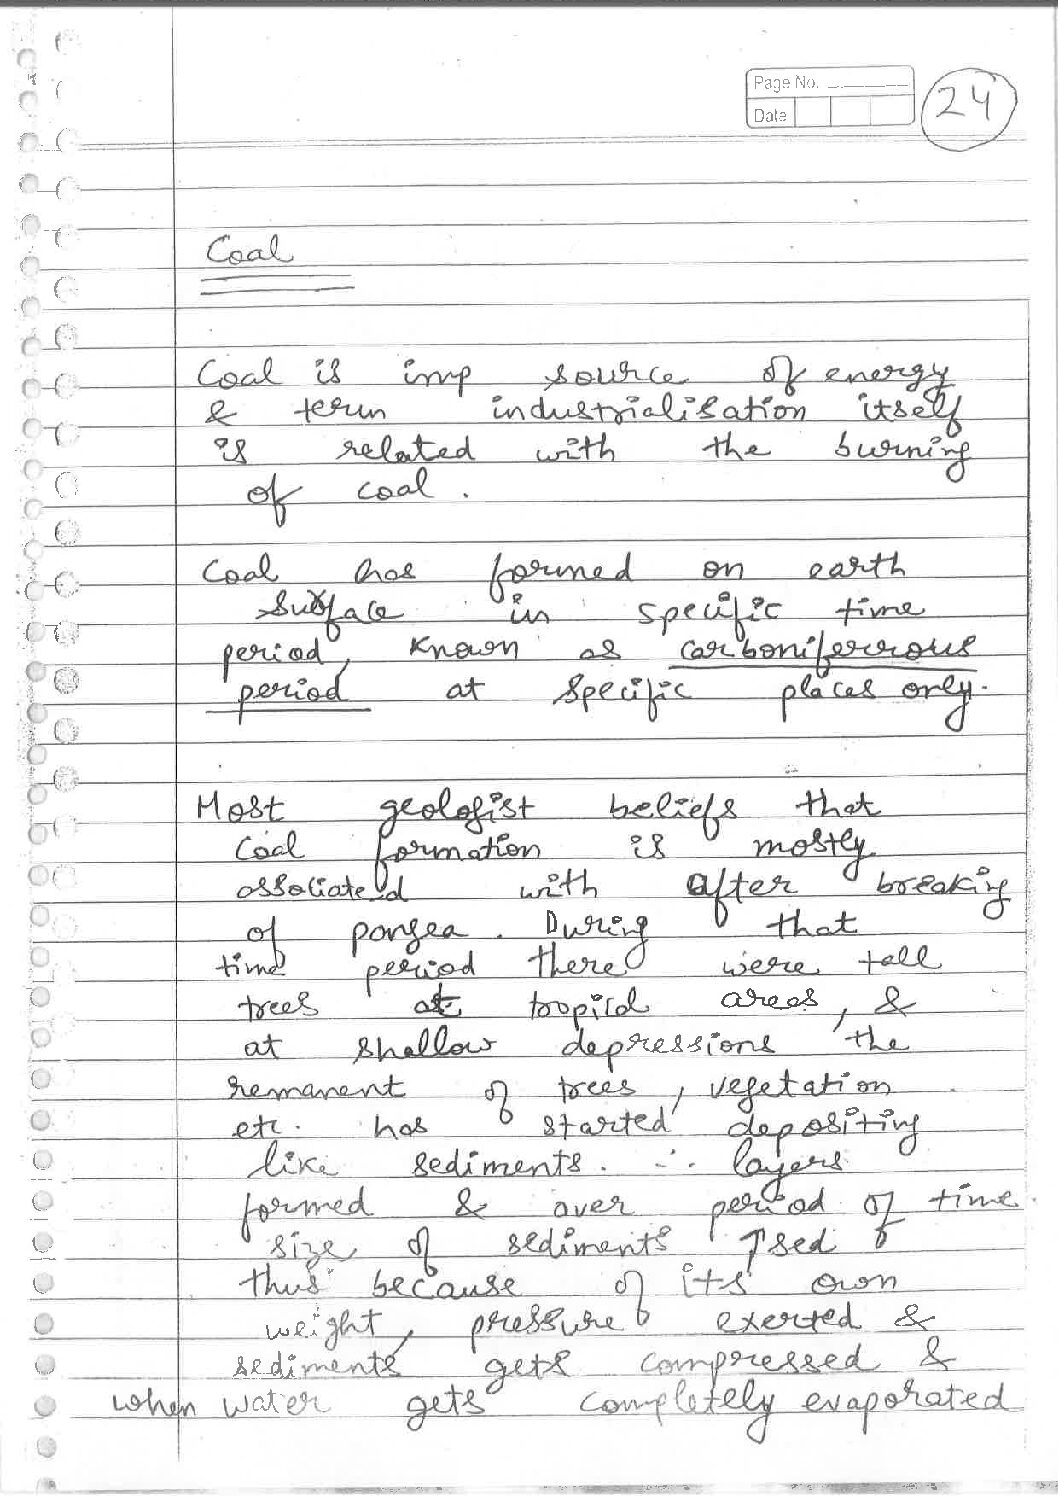 Page No.
Date
24
Coal
Coal is imp source of energy
& term industrialisation itself
is related with the burning
of coal.
Coal has formed on earth
surface in specific time
period, known as carboniferrous
period at specific places only.
Most geologist beliefs that
coal formation is mostly
associated with after breaking
of pangea. During that
time period there were tall
trees at tropical areas, &
at shallow depressions the
remanent of trees, vegetation
etc. has started depositing
like sediments. ∴ layers
formed & over period of time
size of sediments ↑sed &
thus because of its own
weight, pressure exerted &
sediments gets compressed &
when water gets completely evaporated